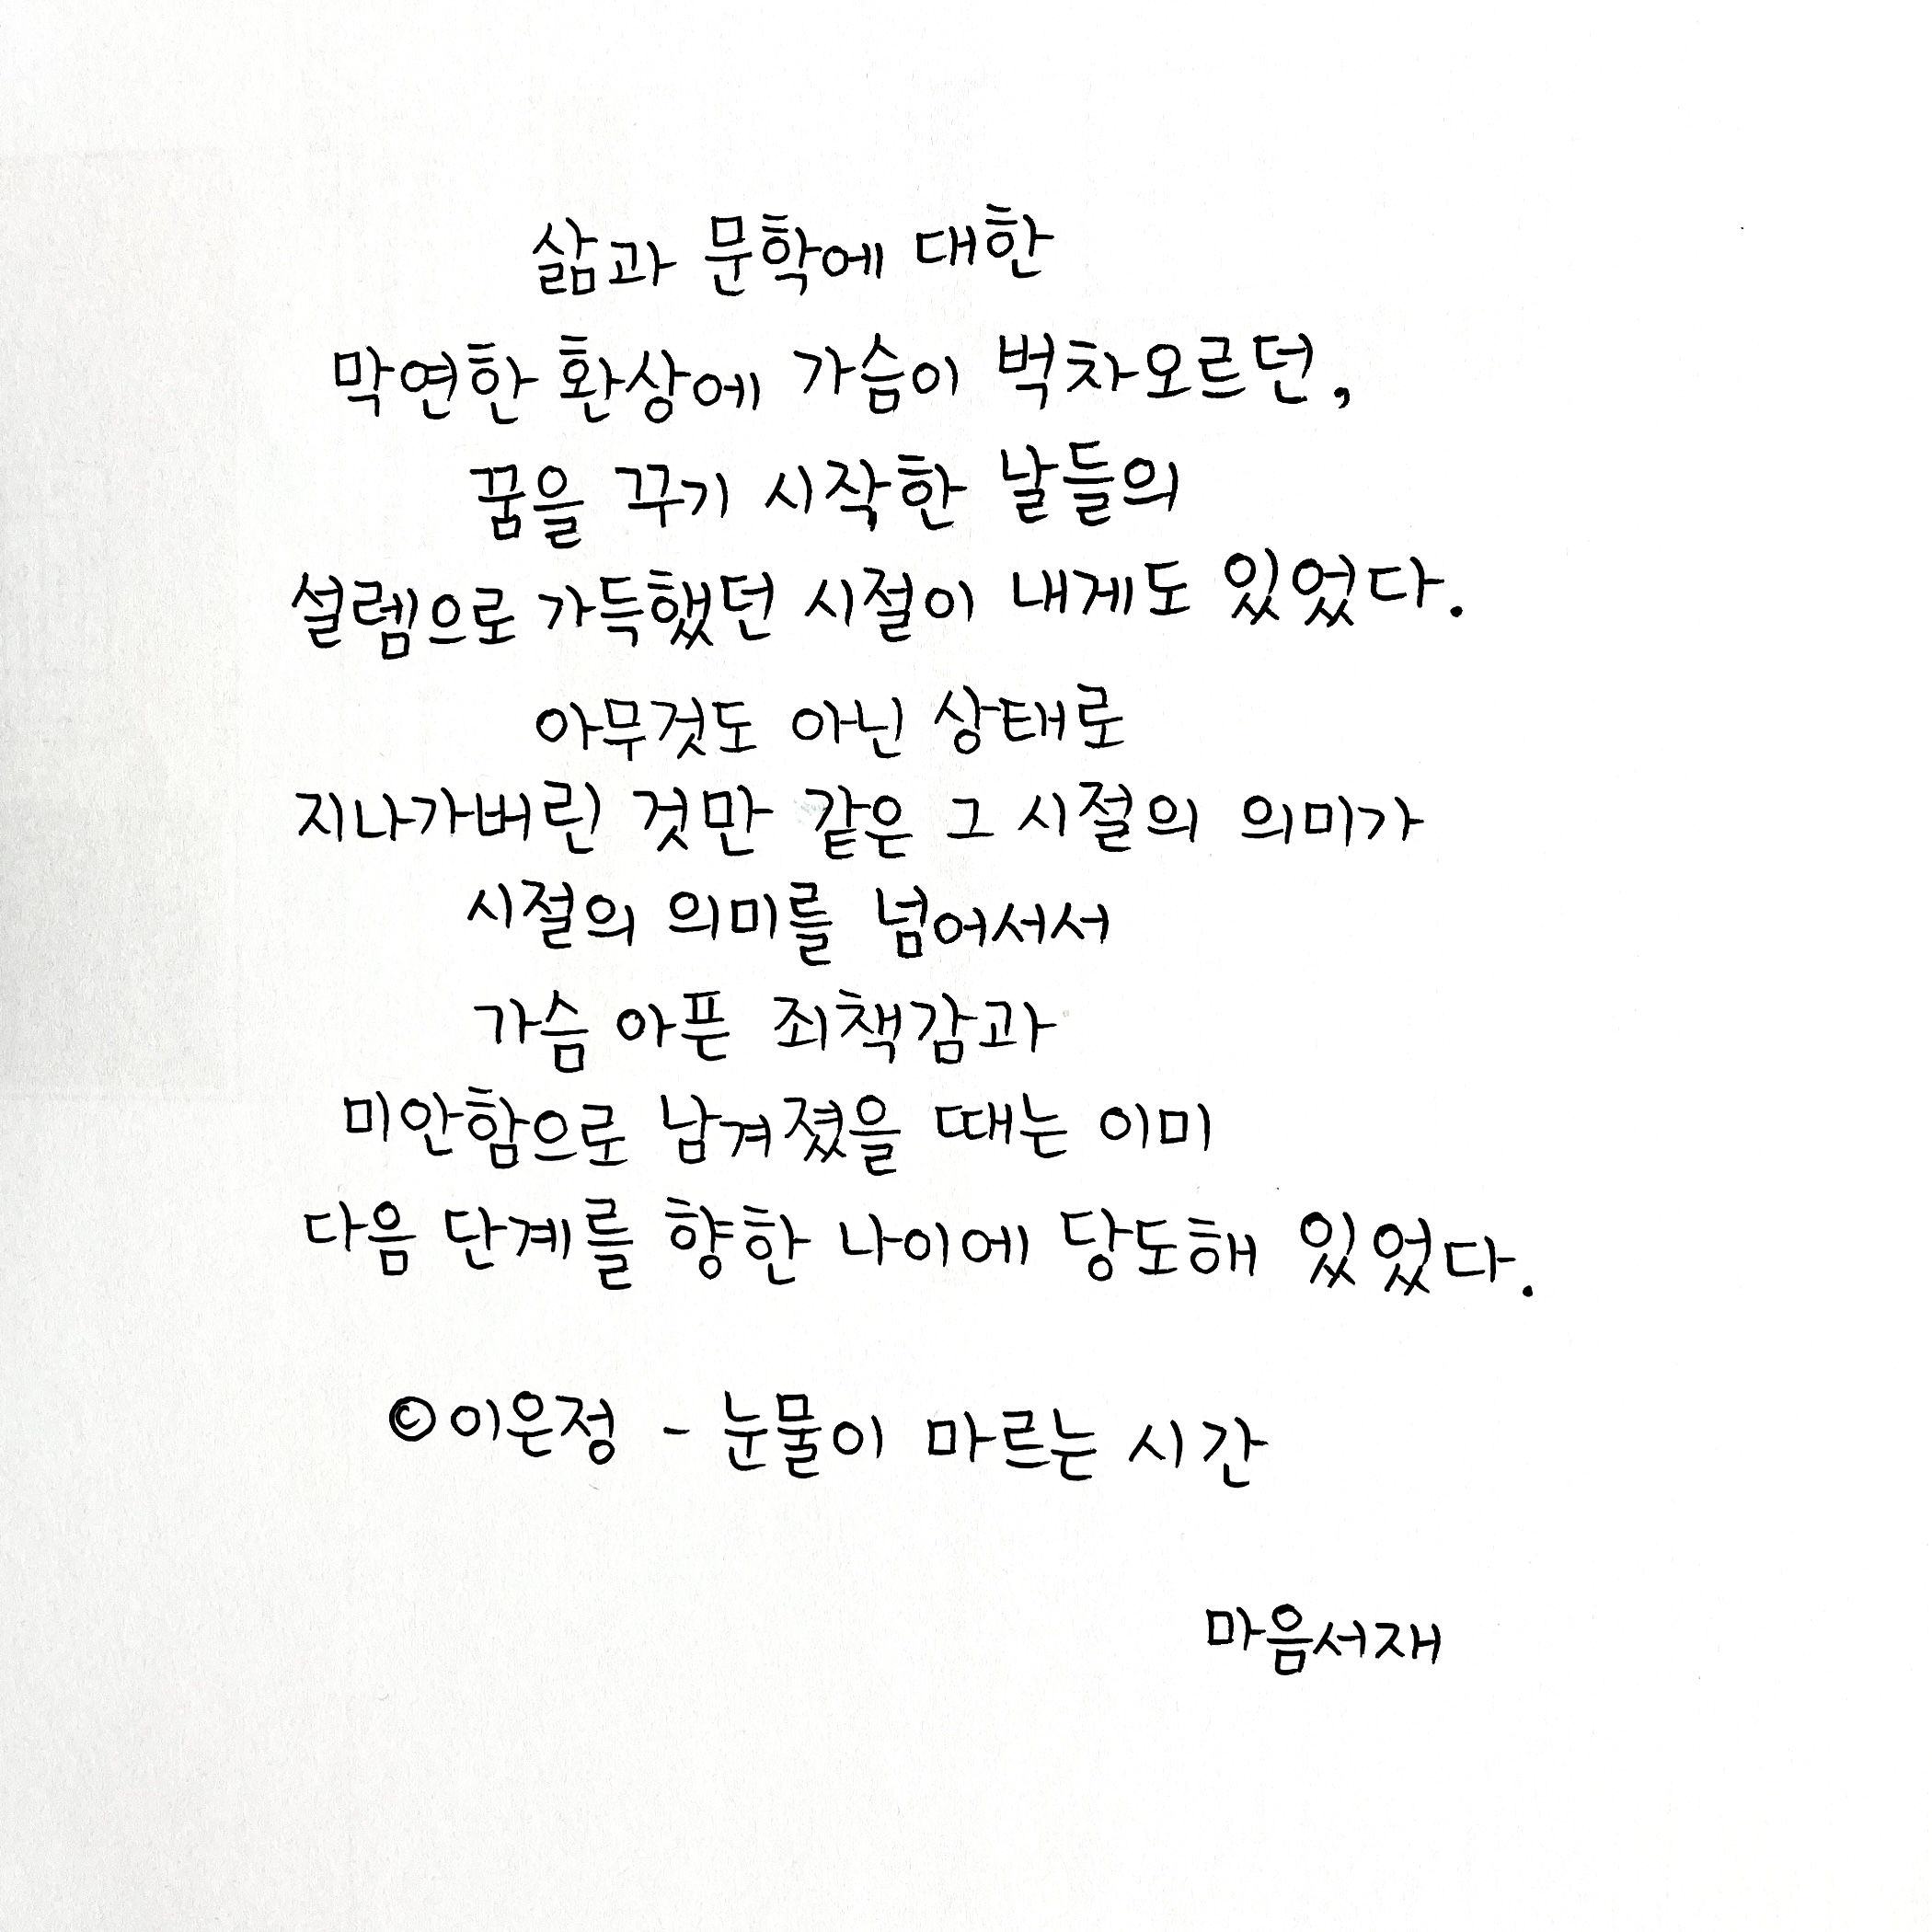 삶과 문학에 대한
막연한 환상에 가슴이 벅차오르던,
꿈을 꾸기 시작한 날들의
설렘으로 가득했던 시절이 내게도 있었다.
아무것도 아닌 상태로
지나가버린 것만 같은 그 시절의 의미가
시절의 의미를 넘어서서
가슴 아픈 죄책감과
미안함으로 남겨졌을 때는 이미
다음 단계를 향한 나이에 당도해 있었다.
©이은정 - 눈물이 마르는 시간
마음서재